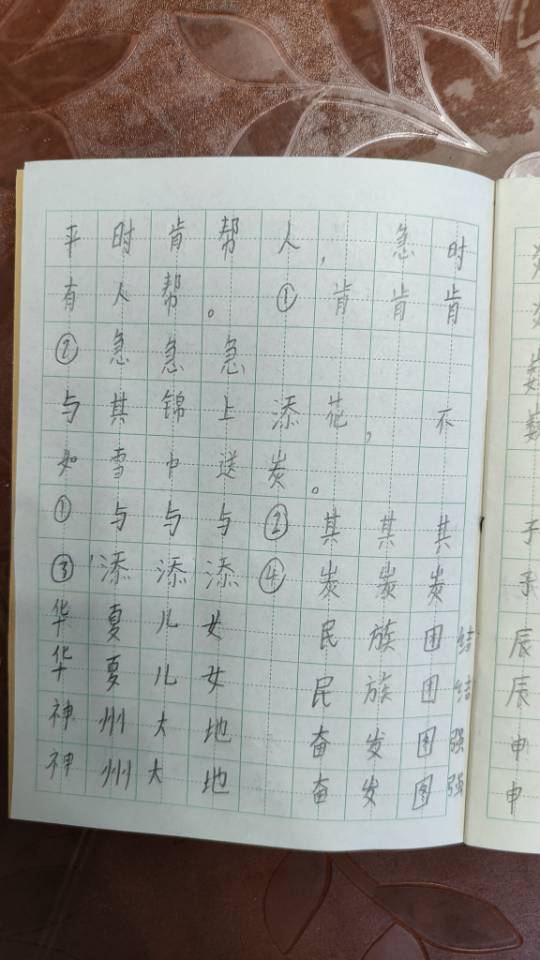 平时肯帮人，急时
有人帮。①肯肯肯
②急急急
与其锦上添花，不
如雪中送炭。
①与与与②其其其
③添添添④炭炭炭
华夏儿女 民族团结
华夏儿女 民族团结
神州大地 奋发图强
神州大地 奋发图强
子
子
辰
辰
申
申